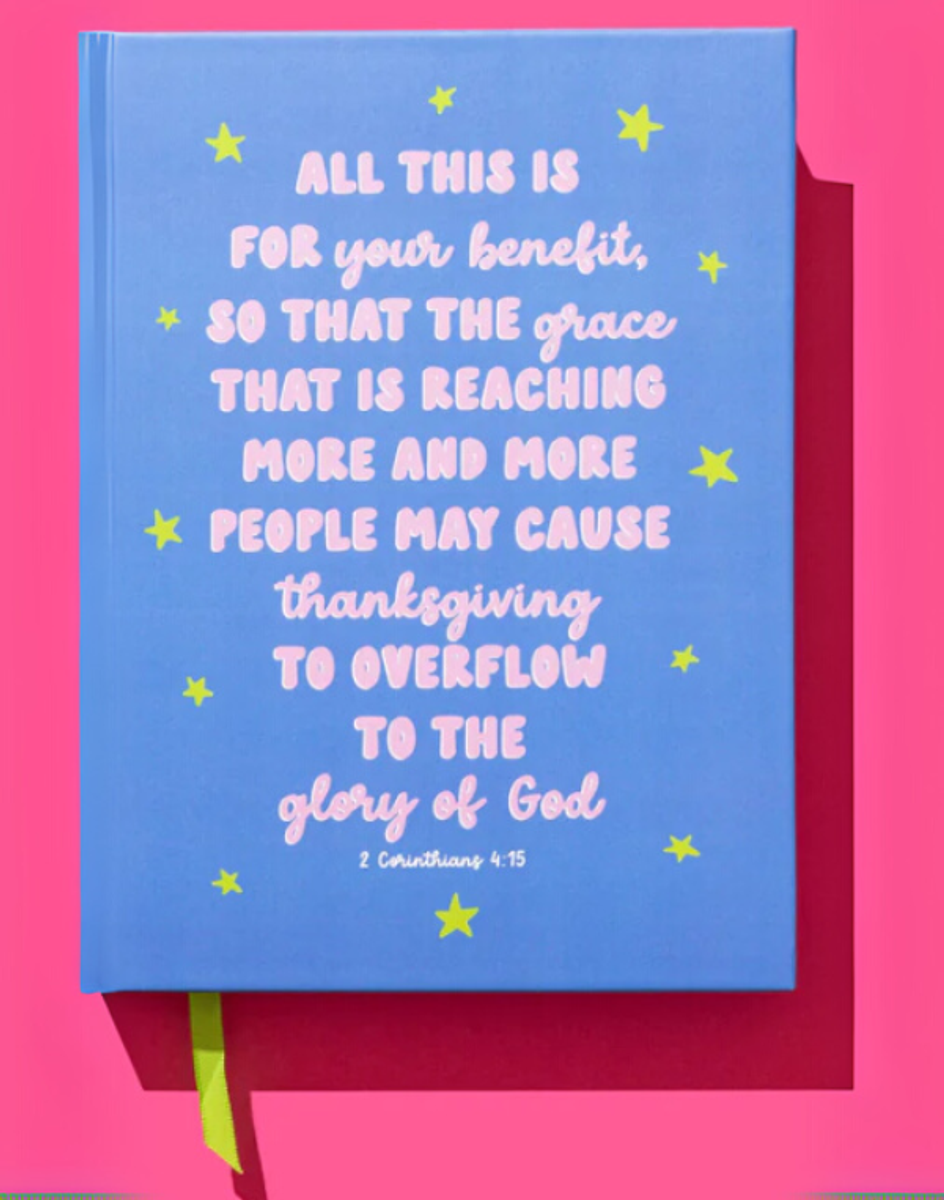 ALL THIS IS
FOR your benefit,
SO THAT THE grace
THAT IS REACHING
MORE AND MORE
PEOPLE MAY CAUSE
thanksgiving
TO OVERFLOW
TO THE
glory of God
2 Corinthians 4:15